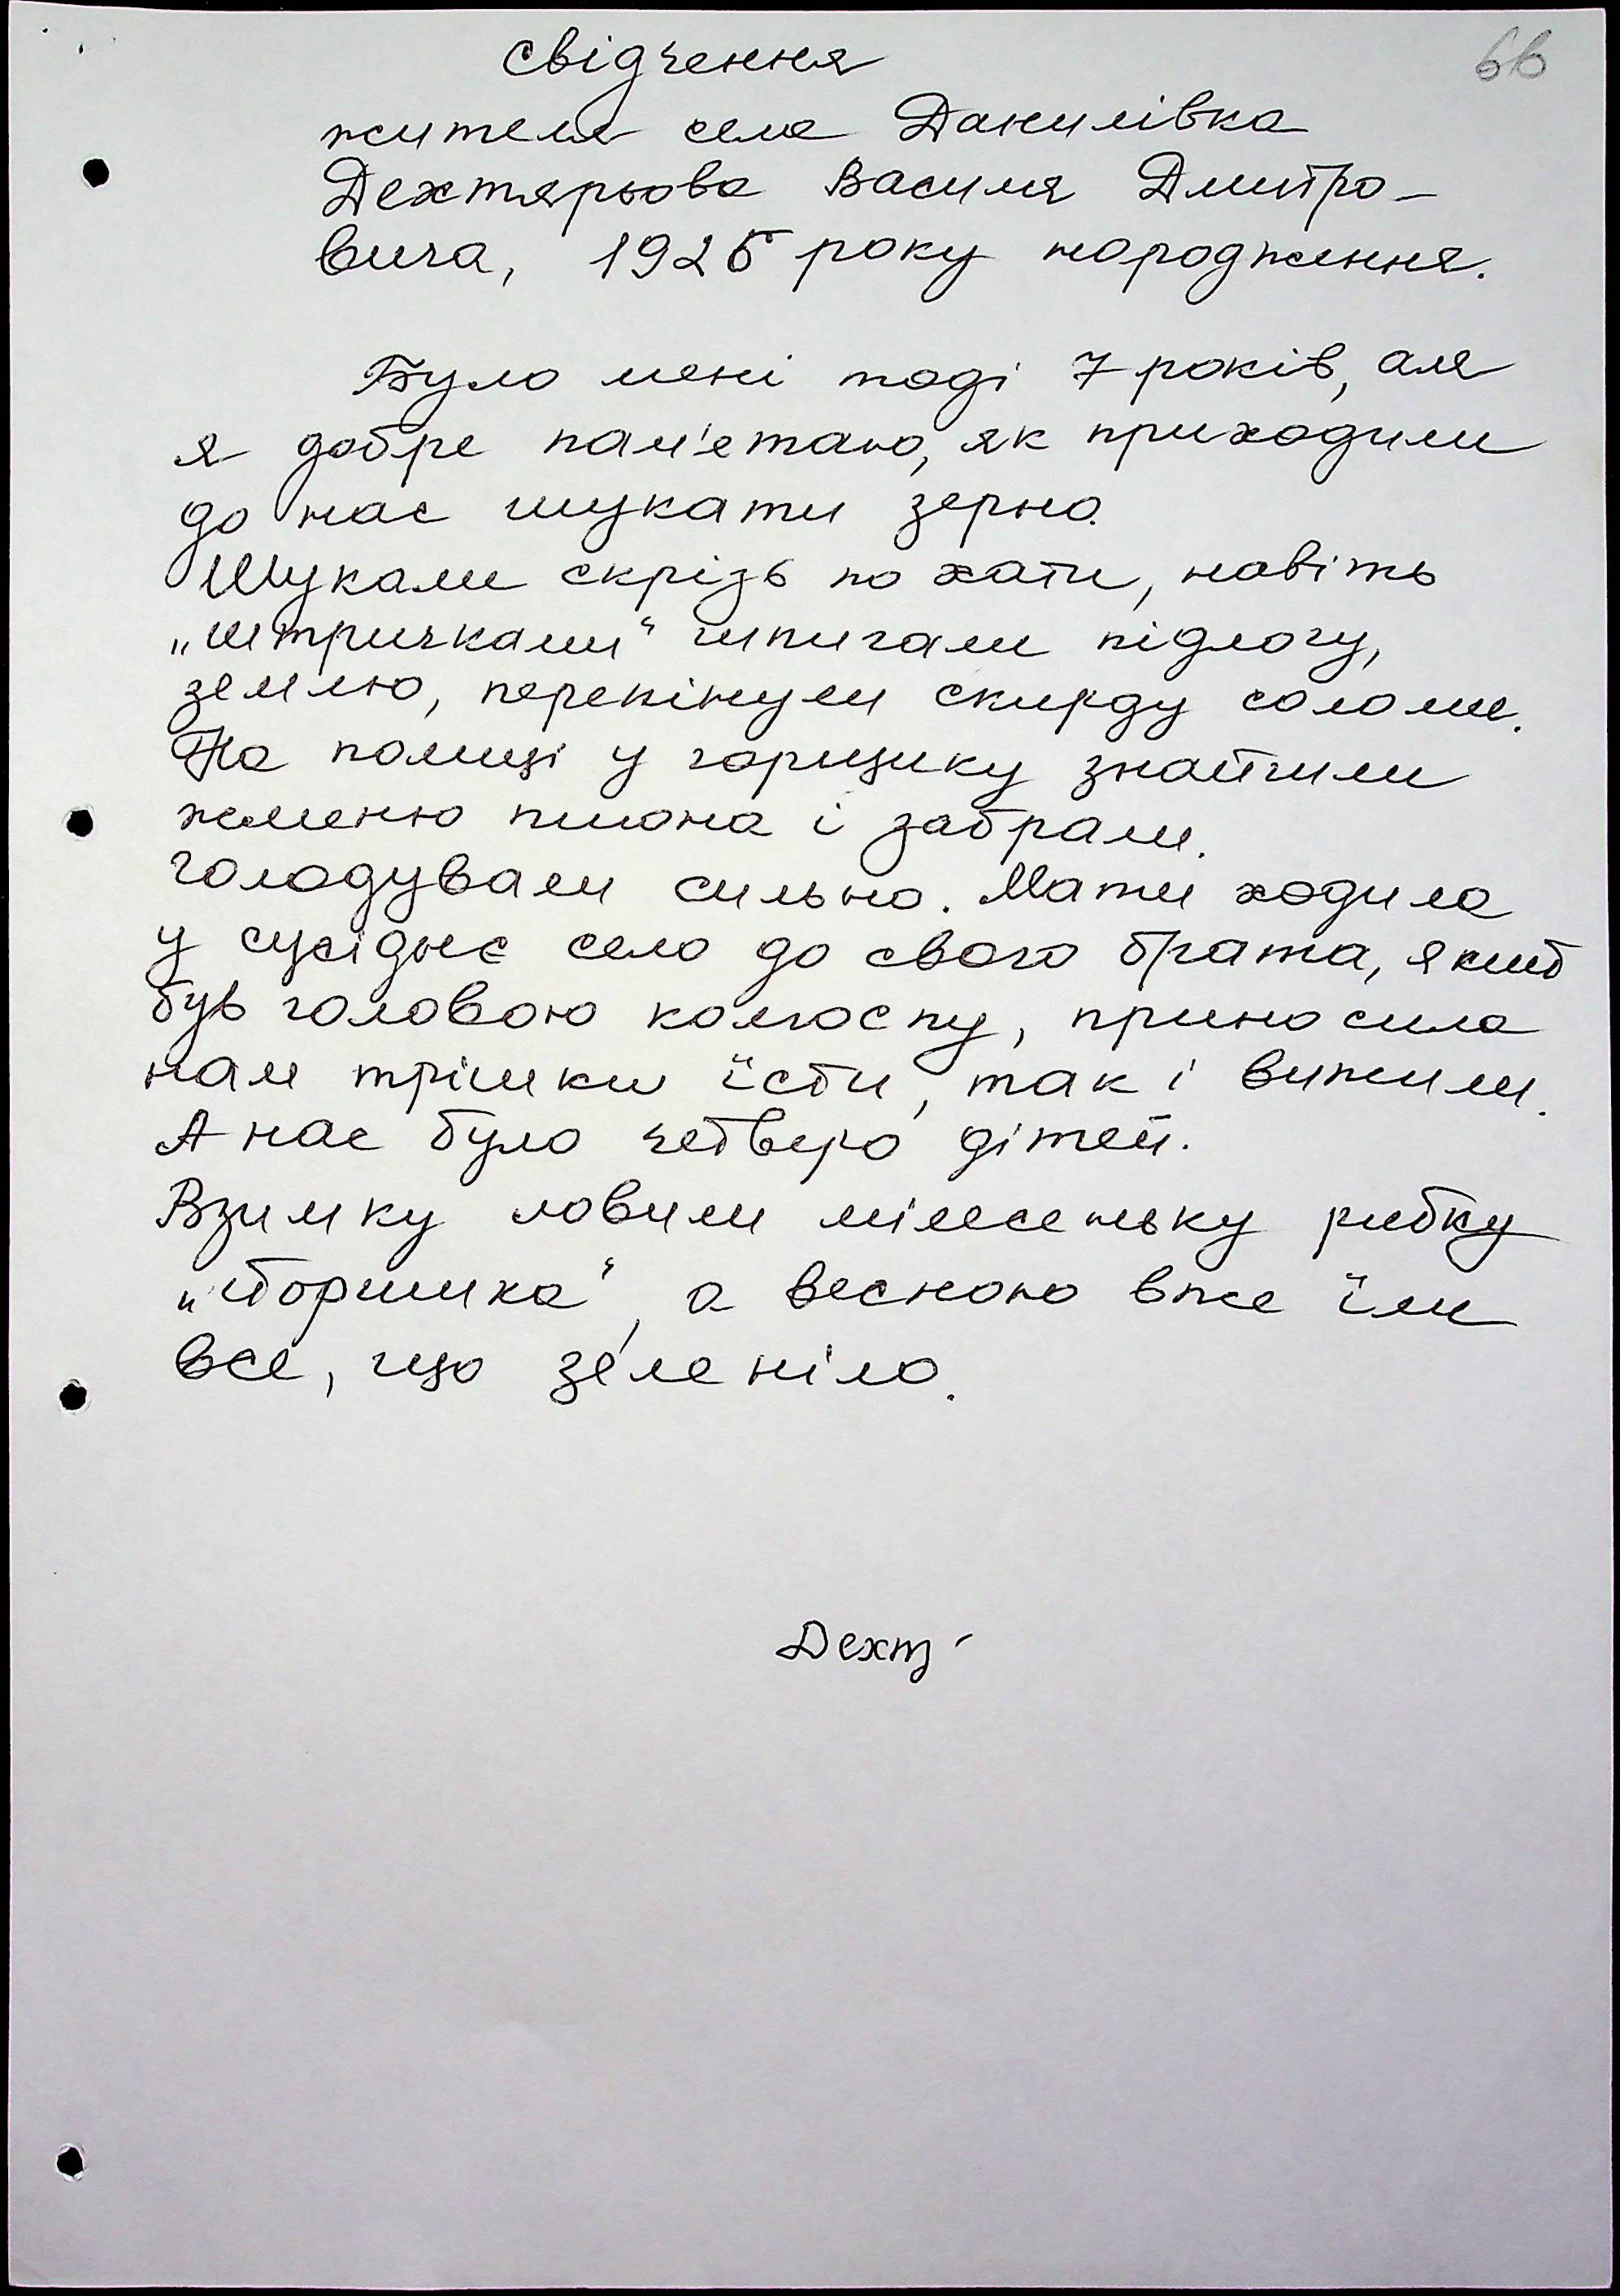 66
свідчення
жителя села Данилівка
Дехтярьова Василя Дмитро-
вича, 1925 року народження.
Було мені тоді 7 років, але
я добре пам'етаю, як приходили
до нас шукати зерно.
Шукали скрізь по хати, навіть
„штричками" шпигали підлогу,
землю, перекінули скирду соломи.
На полиці у горщику знайшли
жменю пшона і забрали.
Голодували сильно. Мати ходила
у сусіднє село до свого брата, який
був головою колгоспу, приносила
нам трішки їсти, так і вижили.
А нас було четверо дітей.
Взимку ловили мілесеньку рибку
а весною вже їли
все, що зеленіло.
Дехт